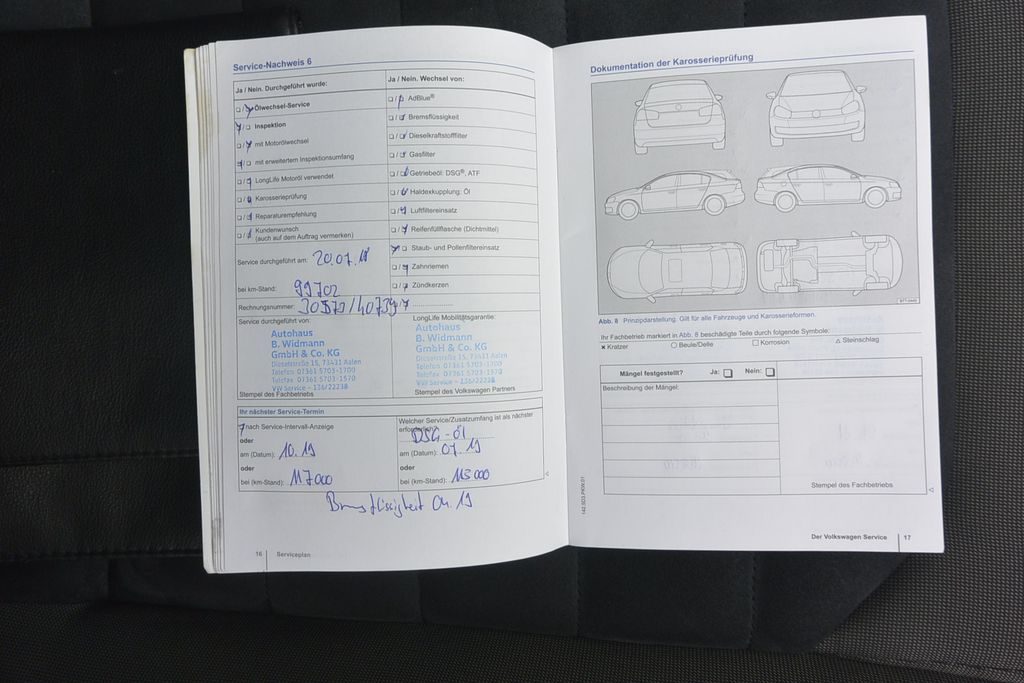 Service-Nachweis 6
Ja / Nein. Durchgeführt wurde:
Ölwechsel-Service
Inspektion
mit Motorölwechsel
mit erweitertem Inspektionsumfang
LongLife Motoröl verwendet
Karosserieprüfung
Reparaturempfehlung
Kundenwunsch
(auch auf dem Auftrag vermerken)
Service durchgeführt am: 20.07.18
bei km-Stand: 99702
Rechnungsnummer:
Service durchgeführt von:
Autohaus
B. Widmann
GmbH & Co. KG
Dieselstraße 15, 73431 Aalen
Telefon 07361 5703-1700
Telefax 07361 5703-1570
VW Service - 136/22238
Stempel des Fachbetriebs
Ja / Nein. Wechsel von:
AdBlue®
Bremsflüssigkeit
Dieselkraftstofffilter
Gasfilter
Getriebeöl: DSG®, ATF
Haldexkupplung: Öl
Luftfiltereinsatz
Reifenfüllflasche (Dichtmittel)
Staub- und Pollenfiltereinsatz
Zahnriemen
Zündkerzen
LongLife Mobilitätsgarantie:
Autohaus
B. Widmann
GmbH & Co. KG
Dieselstraße 15, 73431 Aalen
Telefon 07361 5703-1700
Telefax 07361 5703-1570
VW Service - 136/22238
Stempel des Volkswagen Partners
Ihr nächster Service-Termin
nach Service-Intervall-Anzeige
oder
am (Datum): 10.19
oder
bei (km-Stand): 117000
Welcher Service/Zusatzumfang ist als nächster
erforderlich?
DSG-Öl
am (Datum): 07.19
oder
bei (km-Stand): 113000
Bremsflüssigkeit 04.19
16 Serviceplan
Dokumentation der Karosserieprüfung
Abb. 8 Prinzipdarstellung. Gilt für alle Fahrzeuge und Karosserieformen.
Ihr Fachbetrieb markiert in Abb. 8 beschädigte Teile durch folgende Symbole:
× Kratzer ○ Beule/Delle □ Korrosion △ Steinschlag
Mängel festgestellt? Ja: Nein:
Beschreibung der Mängel:
Stempel des Fachbetriebs
142.5D3.PKW.01
Der Volkswagen Service 17